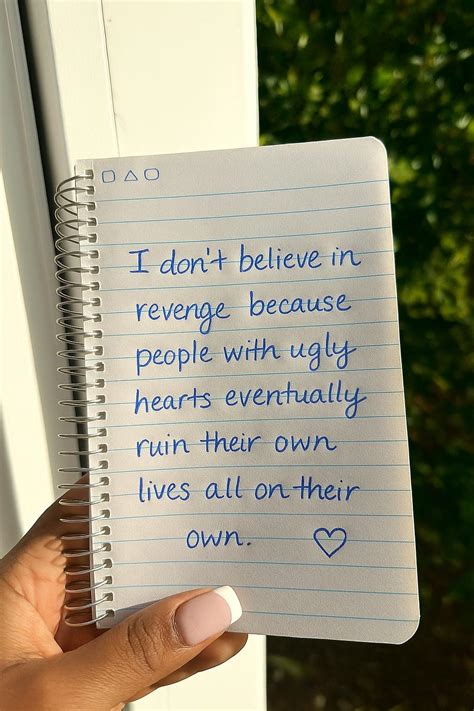 I don't believe in
revenge because
people with ugly
hearts eventually
ruin their own
lives all on their
own.